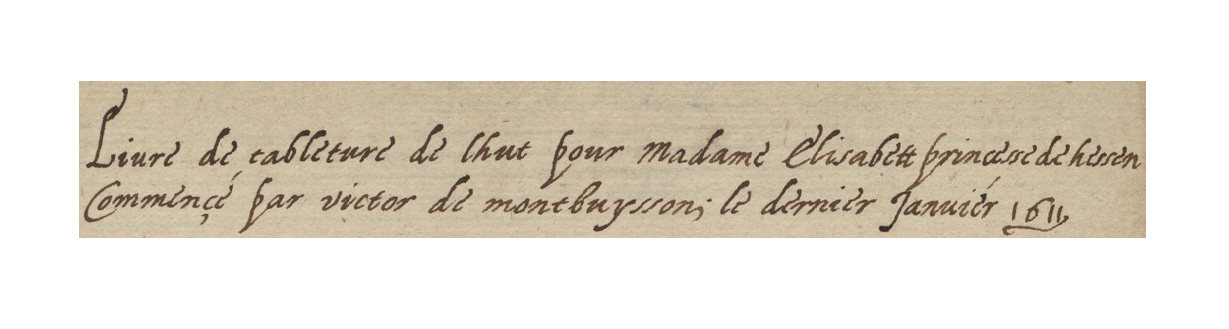 Liure de tableture de lhut pour Madame Elisabett princesse de hessen
Commençé par victor de montbuysson; le dernier Januier 1611